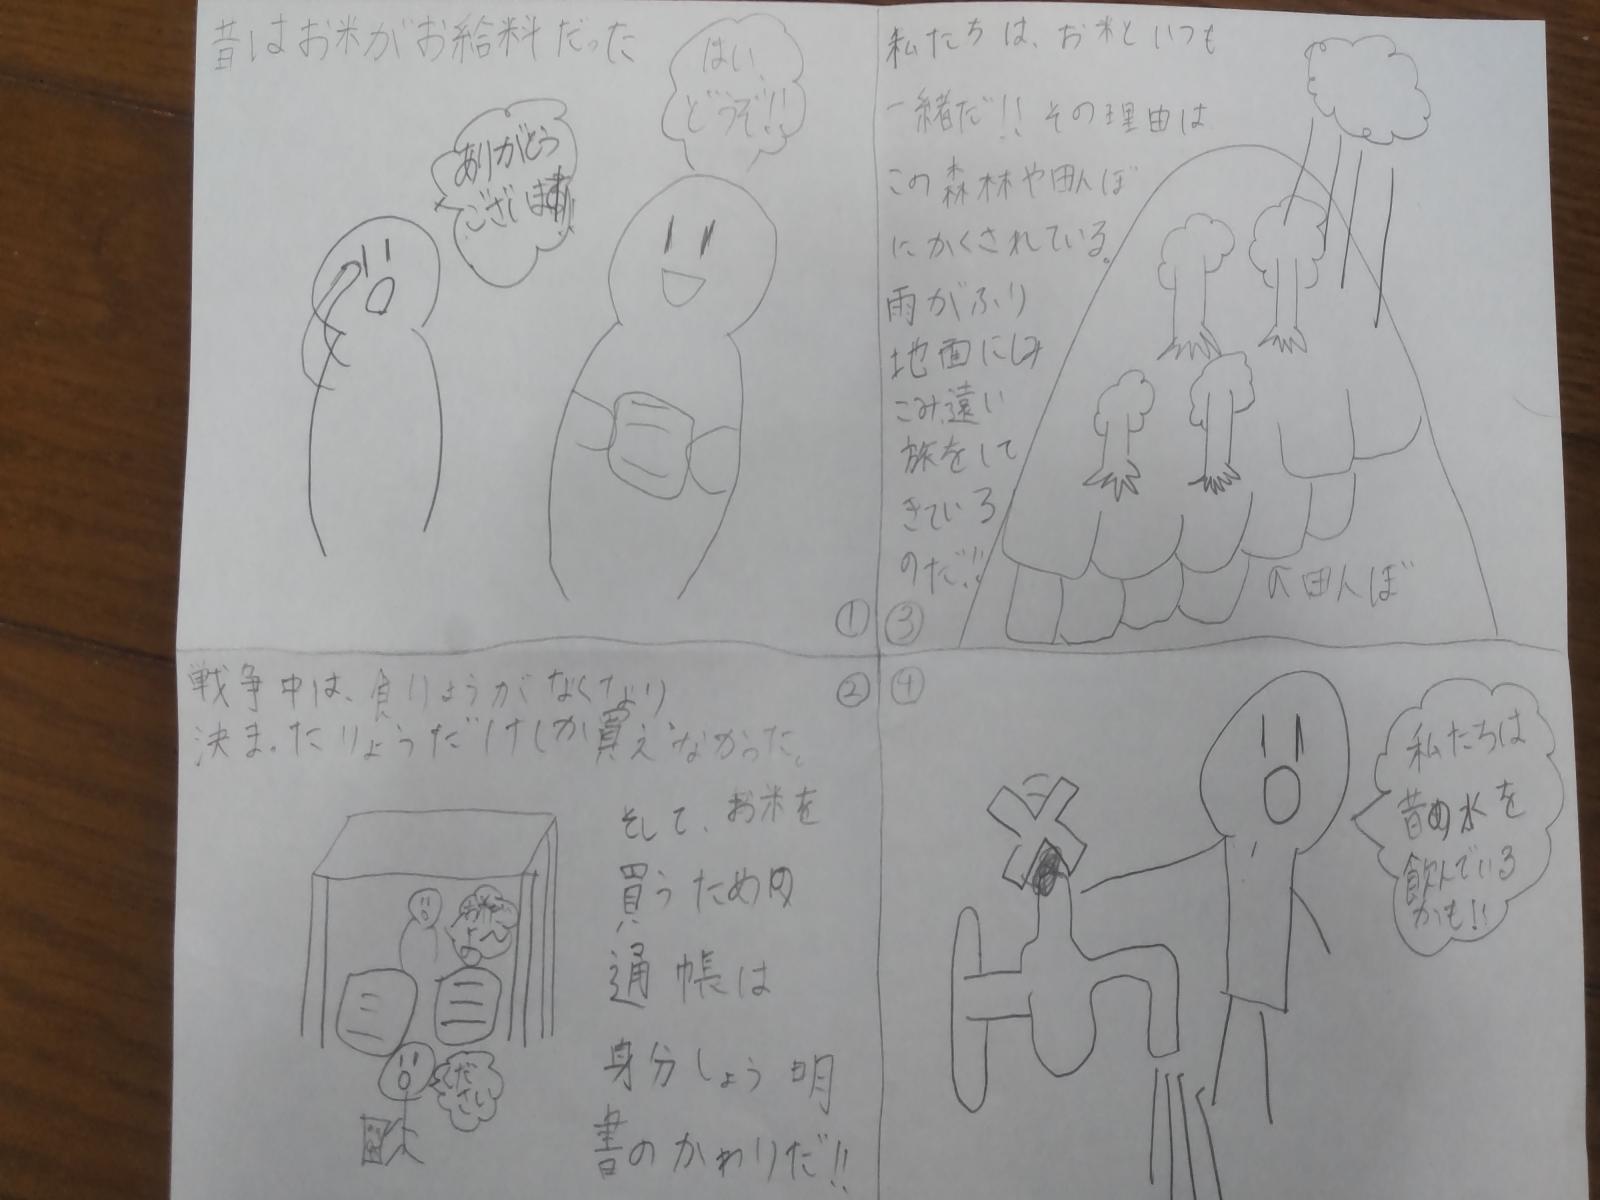 昔はお米がお給料だった
はい、
どうぞ!!
ありがとう
ございます!!
①
②
戦争中は、食りょうがなくなり
決まったりょうだけしか買えなかった。
そして、お米を
買うための
通帳は
身分しょう明
書のかわりだ!!
ください
③
私たちは、お米といつも
一緒だ!!その理由は
この森林や田んぼ
にかくされている。
雨がふり
地面にしみ
こみ遠い
旅をして
きている
のだ!!
田んぼ
④
私たちは
昔の水を
飲んでいる
かも!!